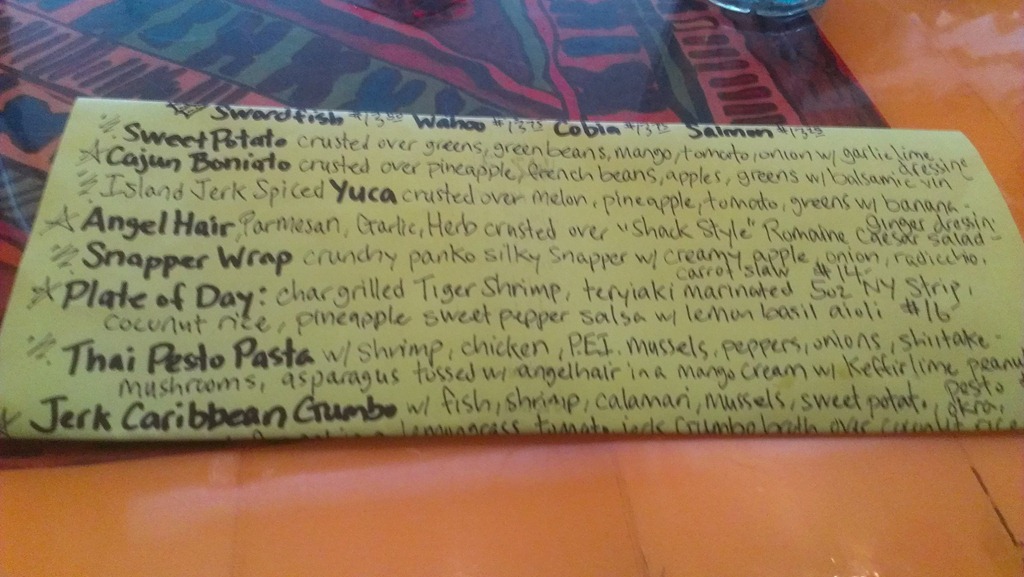 Swordfish $13 Wahoo $13.75 Cobia $13.75 Salmon $13.25
Sweet Potato crusted over greens, greenbeans, mango, tomato, onion w/ garlic lime dressing
Cajun Boniato crusted over pineapple, french beans, apples, greens w/ balsamic vin
Island Jerk Spiced Yuca crusted over melon, pineapple, tomato, greens w/ banana-
ginger dressin.
Angel Hair, Parmesan, Garlic, Herb crusted over "Shack Style" Romaine Caesar Salad-
Snapper Wrap crunchy panko silky snapper w/ creamy apple, onion, radicchio,
carrot slaw $14.
Plate of Day: chargrilled Tiger Shrimp, teryiaki marinated 5oz NY Strip,
coconut rice, pineapple sweet pepper salsa w/ lemon basil aioli $16
Thai Pesto Pasta w/ shrimp, chicken, P.E.I. mussels, peppers, onions, shiitake-
mushrooms, asparagus tossed w/ angelhair in a mango cream w/ Keffir lime peanu
pesto
Jerk Caribbean Gumbo w/ fish, shrimp, calamari, mussels, sweet potat., okra,
lemongrass tomato jerk Gumbo broth over coconut rice